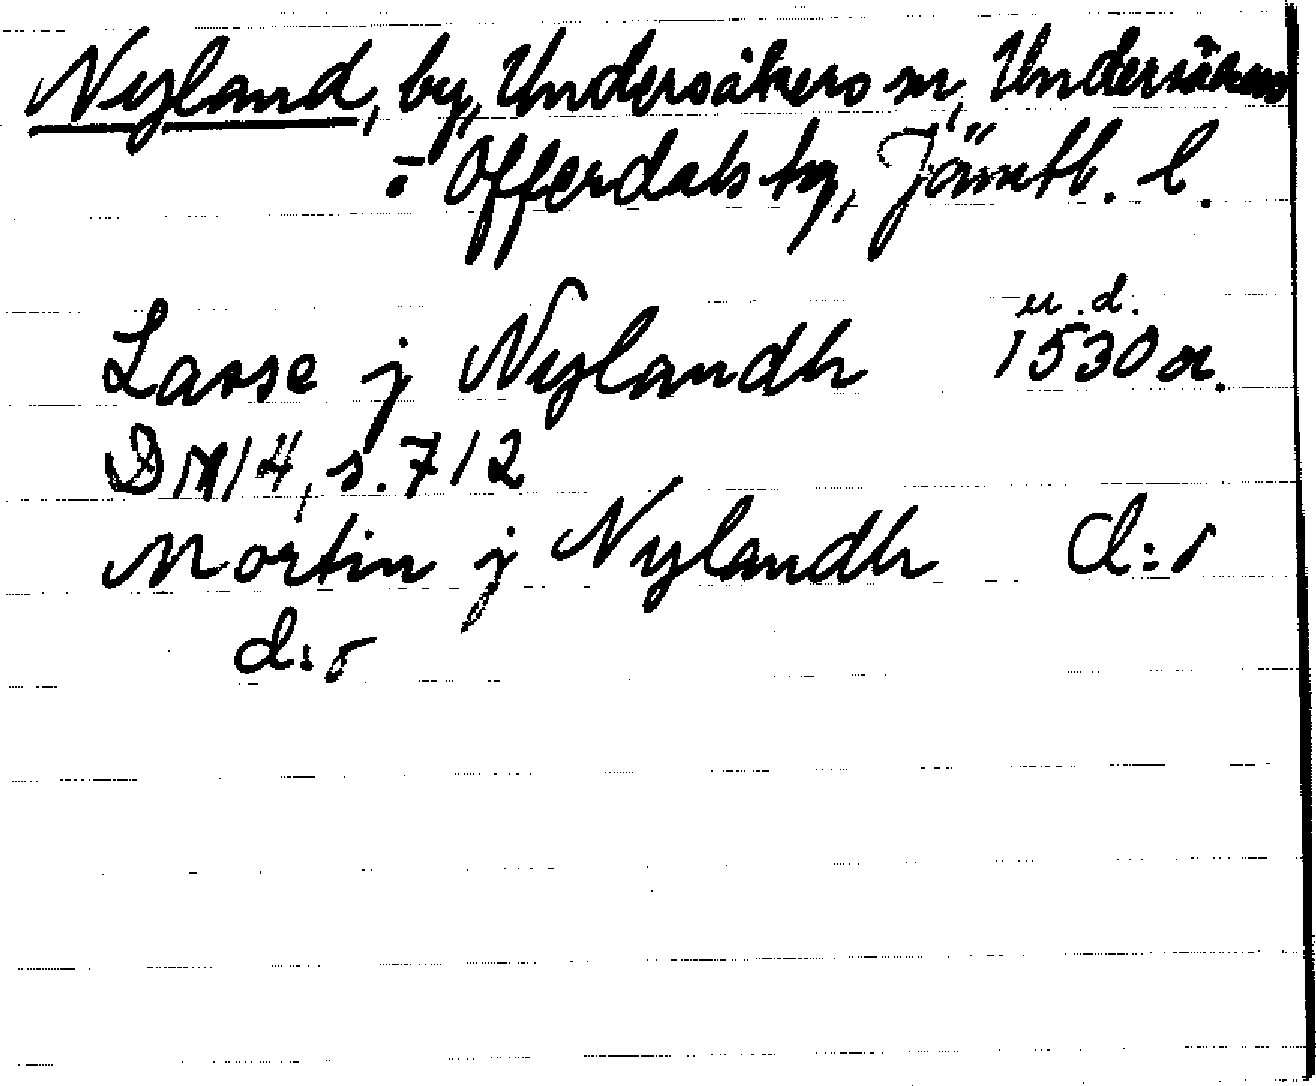 Nyland, by, Undersåkers sn, Undersåkers
o Offerdals tg, Jämtl. l.
u.d.
Lasse j Nylandh 1530 a.
DN 14, s. 712
Mortin j Nylandh d:o
d:o